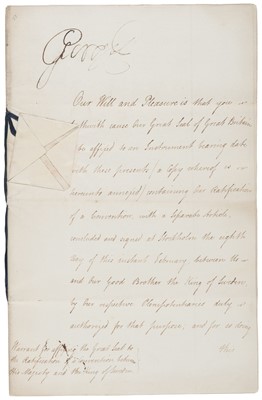 George R
Our Will and Pleasure is that you
forthwith cause Our Great Seal of Great Britain
to be affixed to an Instrument bearing date
with these presents, (a Copy whereof is
hereunto annexed) containing Our Ratification
of a Convention, with a Separate Article,
concluded and signed at Stockholm the eighth
day of this instant February between Us
and Our Good Brother the King of Sweden
by Our respective Plenipotentiaries duly
authorized for that purpose, and for so doing
Warrant for affixing the Great Seal to
the Ratification of a Convention between
His Majesty and the King of Sweden